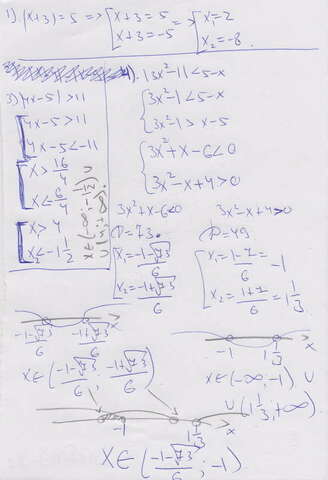 1). |x+3|=5 => [x+3=5 [x+3=-5 => [x=2 [x₂=-8.
3) |4x-5|>11
[4x-5>11
[4x-5<-11
[x>16/4
[x≤6/4
[x>4
[x<-1 1/2
x∈(-∞;-1 1/2)∪
∪(4;+∞).
4). |3x²-1|<5-x
{3x²-1<5-x
{3x²-1>x-5
{3x²+x-6<0
{3x²-x+4>0
3x²+x-6<0
D=73.
[x₁=(-1-√73)/6
[x₂=(-1+√73)/6
3x²-x+4>0
D=49
[x₁=(1-7)/6=-1
[x₂=(1+7)/6=1 1/3
(-1-√73)/6 (-1+√73)/6 x
x∈((-1-√73)/6; (-1+√73)/6)
-1 1 1/3 x
x∈(-∞;-1) ∪
∪(1 1/3;+∞)
-1 1 1/3 x
x∈((-1-√73)/6; -1)